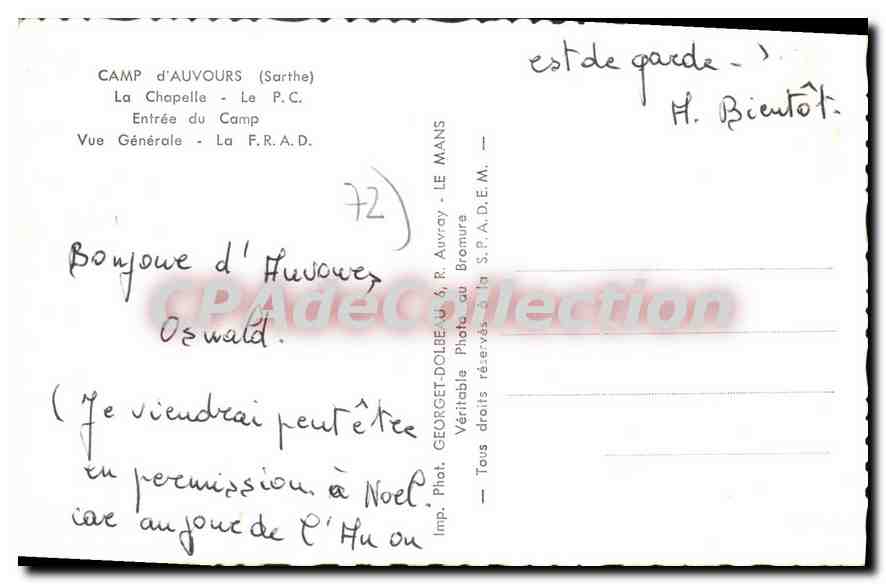 CAMP d'AUVOURS (Sarthe)
La Chapelle - Le P.C.
Entrée du Camp
Vue Générale - La F.R.A.D.
72)
Bonjour d'Auvours,
Oswald.
(Je viendrai peut être
en permission à Noel.
car au jour de l'An on
est de garde - )
A. Bientôt.
Imp. Phot. GEORGET-DOLBEAU, 6, R. Auvray - LE MANS
Véritable Photo au Bromure
— Tous droits réservés à la S.P.A.D.E.M. —
CPAdeCollection